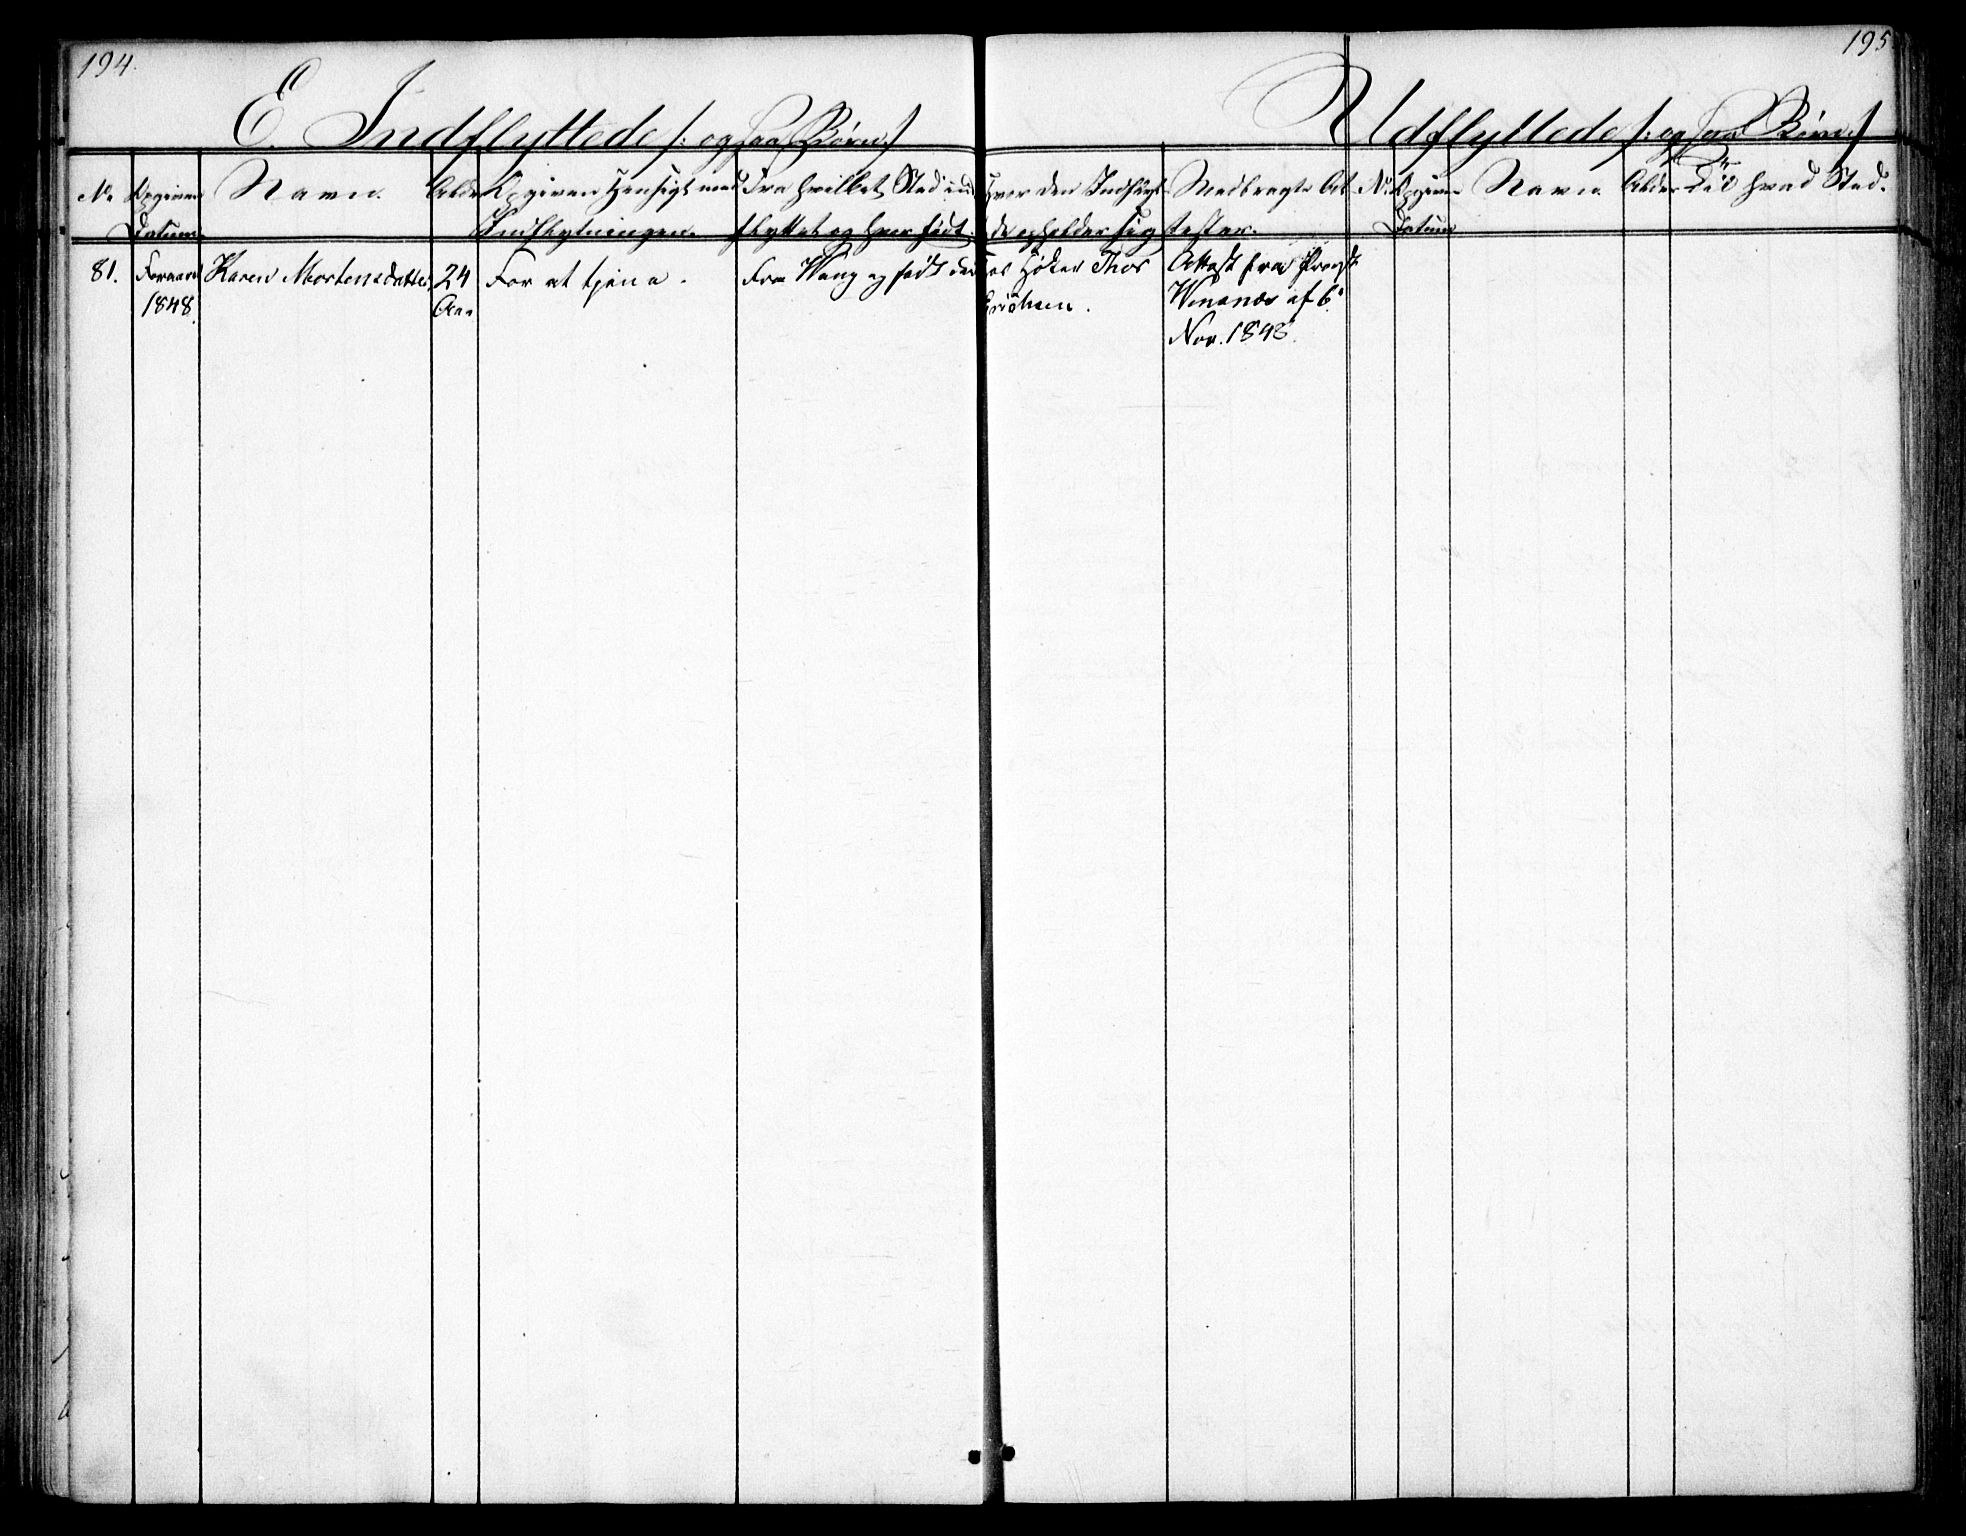 194.
195
E. Indflyttede /: ogsaa Børn:/
Udflyttede /: ogsaa Børn:/
No Opgiven Datum.
Navn.
Alder
Opgiven Hensigt med Indflytningen.
Fra hvilket Sted ind flyttet og hvor født.
Hvor den Indflyt de opholder sig
Medbragte At tester.
No Opgiven Datum
Navn.
Alder
Til hvad Sted.
81.
Foraaret
1848.
Karen Mortensdatter
24
Aar
For at tjene.
Fra Wang og født der
hos Høker Thor
Erichsen.
Attest fra Præst
af 6.
Nov. 1848.